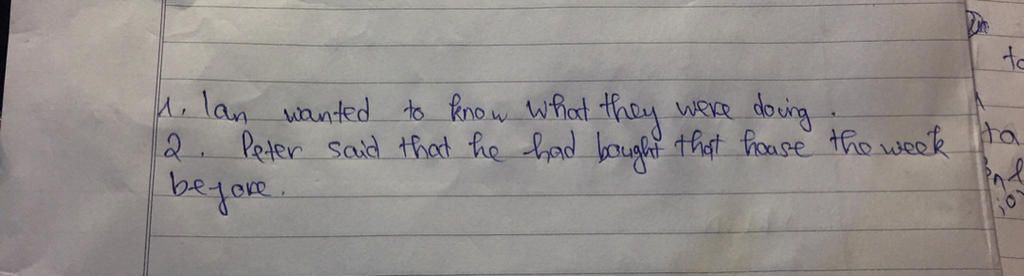 1. Ian wanted to know what they were doing.
2. Peter said that he had bought that house the week
before.